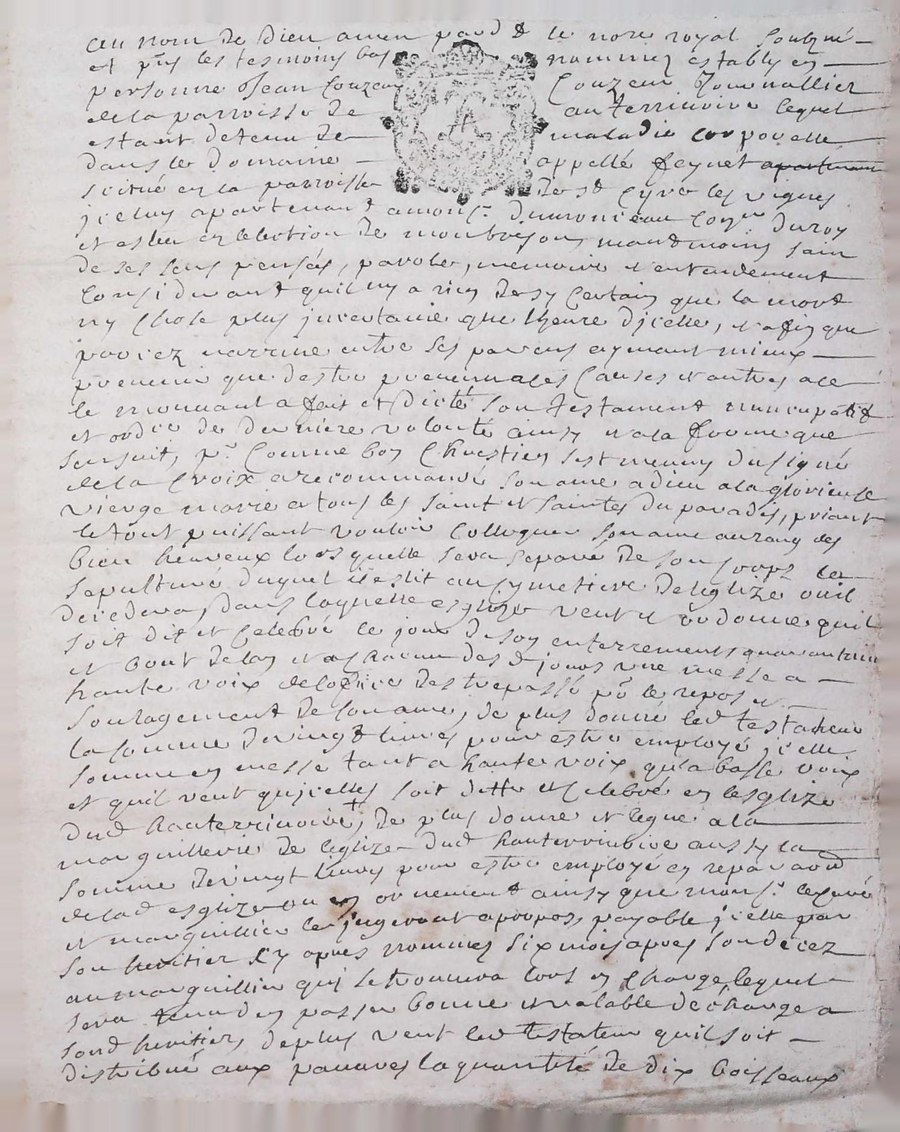 au nom de dieu amen pard le nore royal soubz né
et pnt les tesmoins bas nommez estably en
personne Jean Couzeau Couzeur Journallier
de la parroisse de auterrivoire lequel
estant detenu de maladie corporelle
dans le domaine appellé feynet apartenant
scitué en la parroisse de st Cyre les vignes
jceluy apartenant a monsr. du roy
et eslu en lelection de montbrison, neantmoins sain
de ses sens pensés, parolle, memoire et entandement
Considerant quil ny a rien de sy Certain que la mort
ny Chose plus jncertaine que lheure djcelle, et afin que
procez narrive entre ses parens aymant mieux
prevenir que destre prevenu a ces Causes et autres a ce
le mouvant a fait et dicté son testament nuncupatif
et ordre de derniere volonté ainsy et a la forme que
sensuit, pr. Comme bon Chrestien sest muny du signe
de la Croix a recommandé son ame a dieu a la glorieuse
vierge marie a tous les saint et saintes du paradis, priant
le tout puissant vouloir Colloquer son ame au rang des
bien heureux lors quelle sera separé de son corps la
sepulture duquel il eslit au Cymetiere de leglize ou il
decedera, dans laquelle esglize veut et ordonne quil
soit dit et Celebré le jour de son enterrement quarantain
et bout de lan et a chacun des d jours une messe a
haute voix de loffice des trepassé pr le repos et
soulagement de son ame, de plus donne led testateur
la somme de vingt livres pour estre employé jcelle
somme en messe tant a haute voix qua basse voix
et quil veut qujcelles soit ditte et Celebré en lesglize
dud hauterivoire, De plus donne et legue a la
marguillerie de leglize dud hauterivoire aussy la
somme de vingt livres pour estre employé en reparaon
de lad esglize ou en ornement ainsy que monsr. le curé
et marguillier le jugeront a propos, payable jcelle par
son heritier Cy apres nommé six mois apres son decez
au marguillier qui se trouvera lors en Charge, lequel
sera tenu den passer bonne et valable décharge a
sond heritier, de plus veut led testateur quil soit
distribué aux pauvres la quantité de dix boisseaux